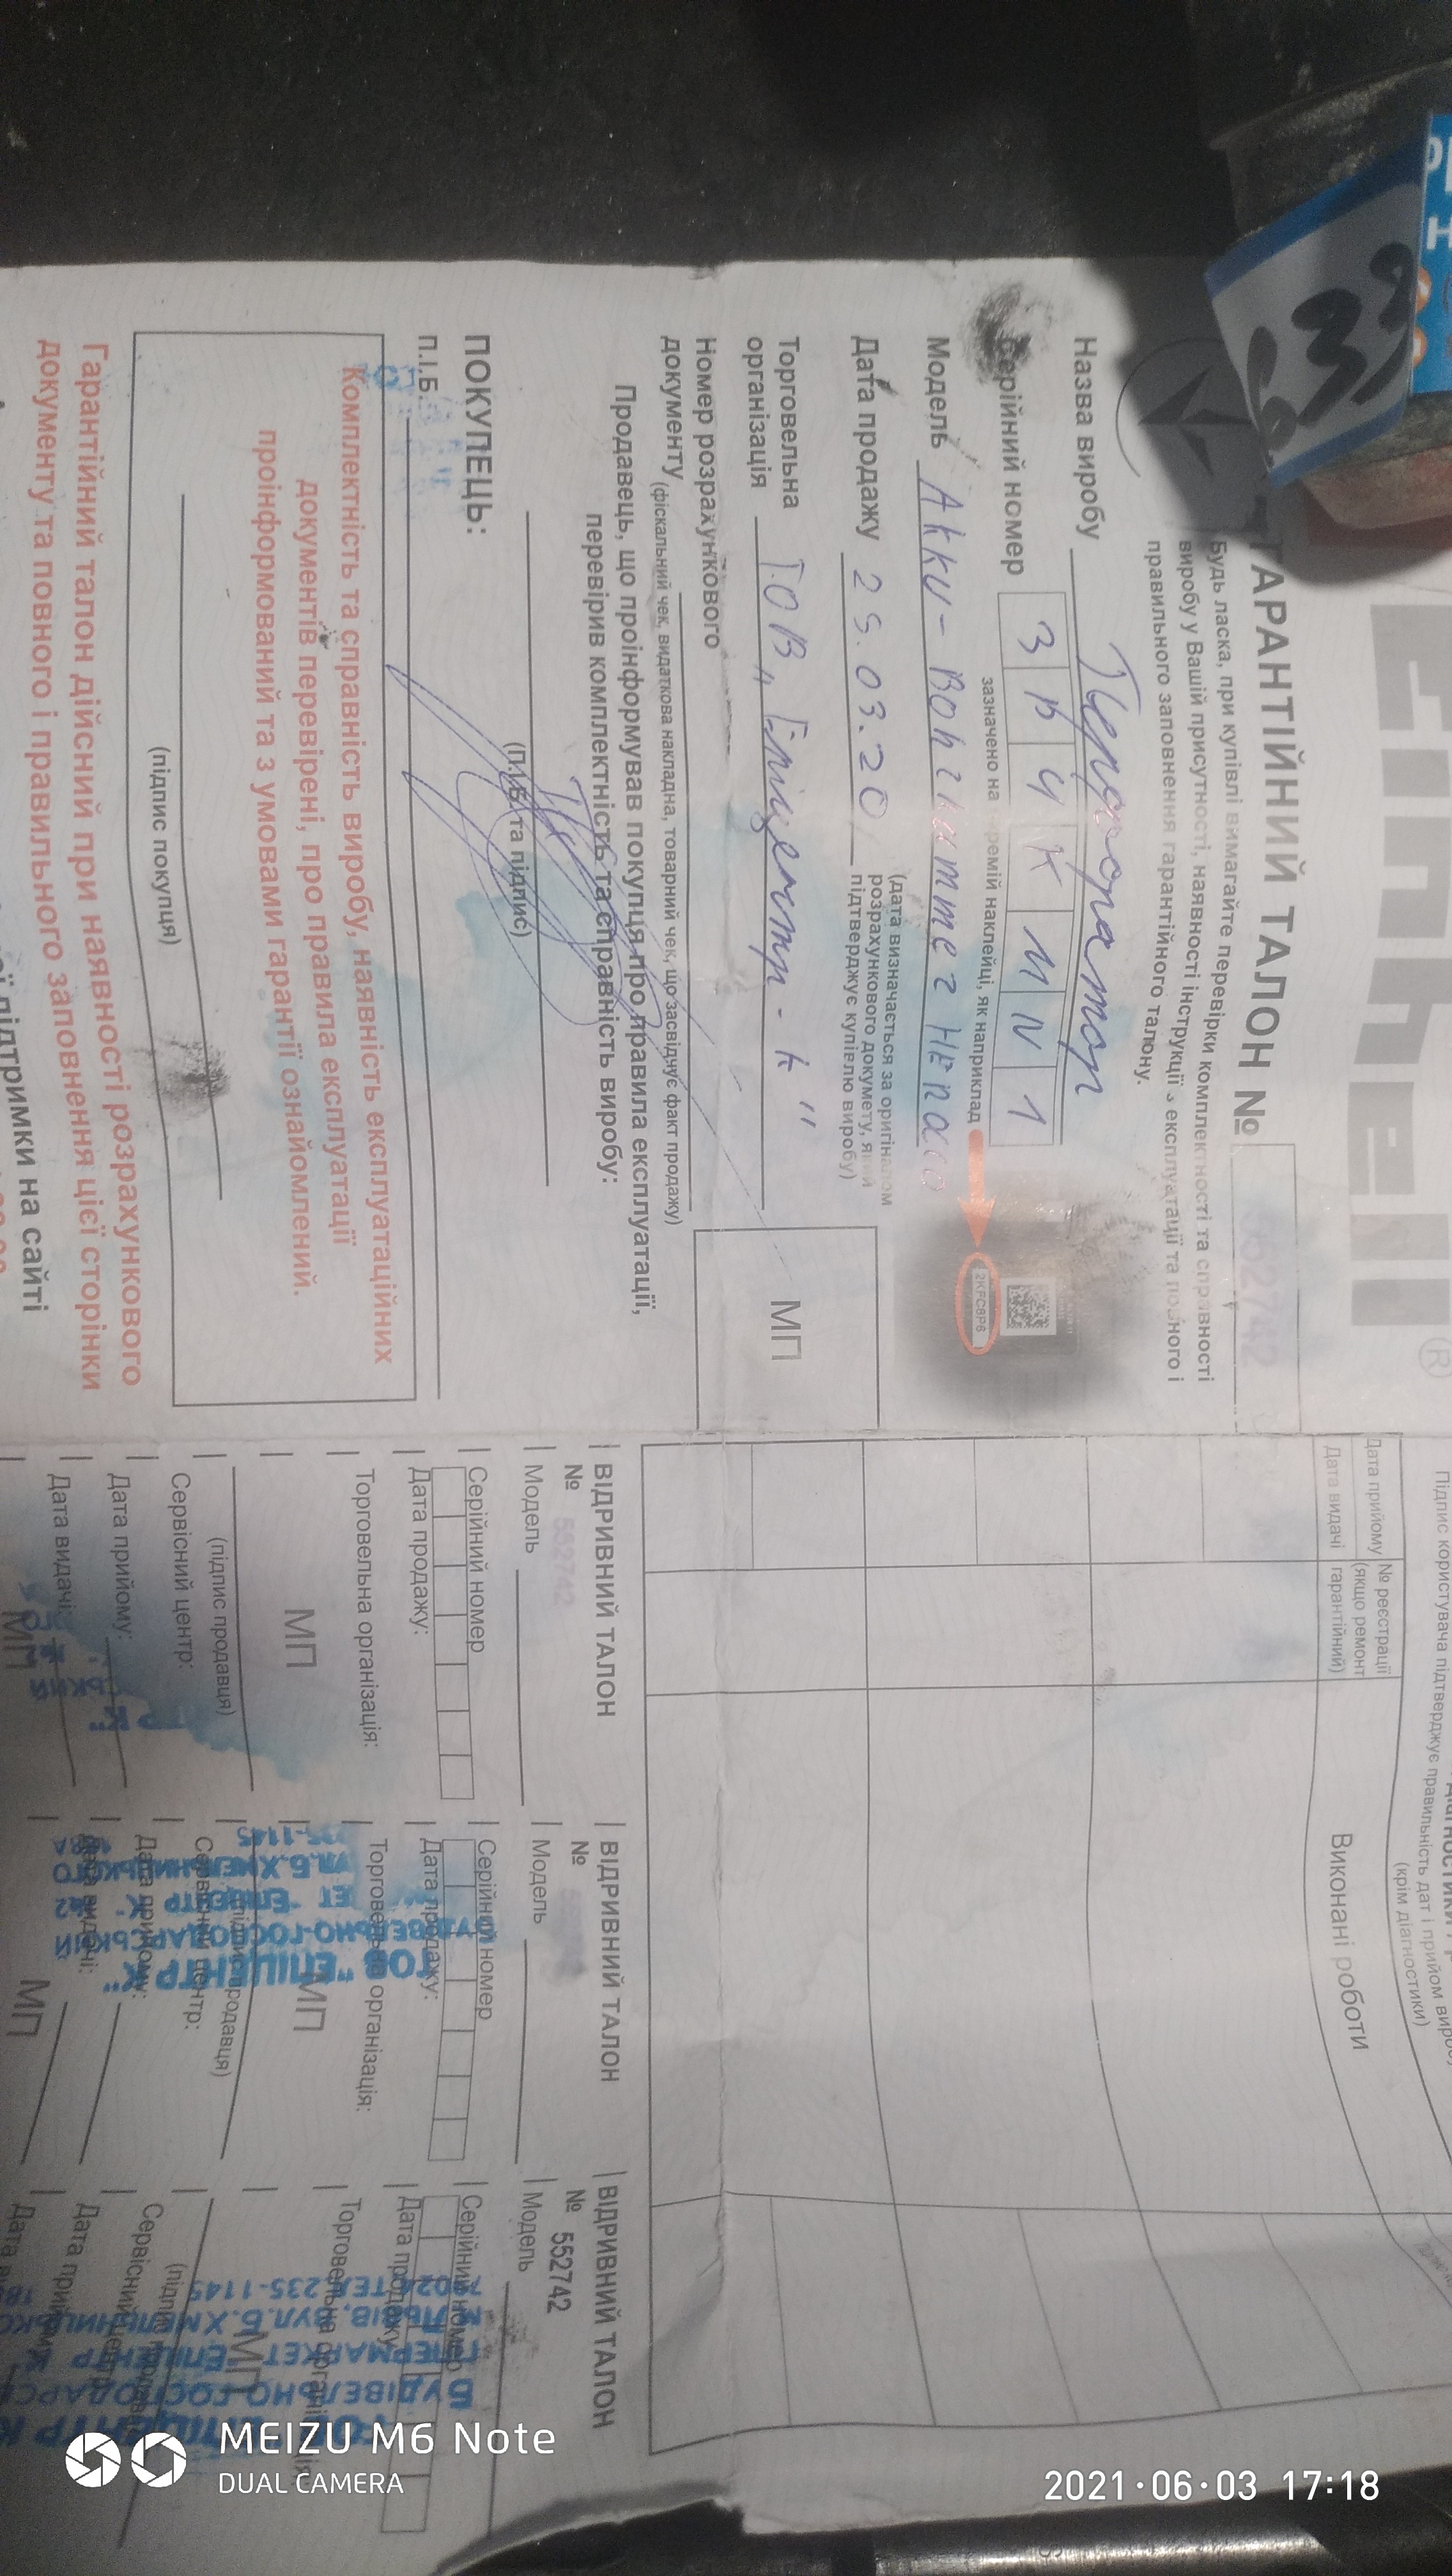 Einhell
®
ГАРАНТІЙНИЙ ТАЛОН № 552742
Будь ласка, при купівлі вимагайте перевірки комплектності та справності
виробу у Вашій присутності, наявності інструкції з експлуатації та повного і
правильного заповнення гарантійного талону.
Назва виробу Перфоратор
Серійний номер
зазначено на окремій наклейці, як наприклад
2KFC8P6
Модель
Дата продажу 25.03.20
(дата визначається за оригіналом
розрахункового документу, який
підтверджує купівлю виробу)
Торговельна
організація ТОВ „Епіцентр-К"
МП
Номер розрахункового
документу (фіскальний чек, видаткова накладна, товарний чек, що засвідчує факт продажу)
Продавець, що проінформував покупця про правила експлуатації,
перевірив комплектність та справність виробу:
(П.І.Б. та підпис)
ПОКУПЕЦЬ:
П.І.Б.
Комплектність та справність виробу, наявність експлуатаційних
документів перевірені, про правила експлуатації
проінформований та з умовами гарантії ознайомлений.
(підпис покупця)
Гарантійний талон дійсний при наявності розрахункового
документу та повного і правильного заповнення цієї сторінки
підтримки на сайті
Підпис користувача підтверджує правильність дат і прийом
(крім діагностики)
Дата прийому
Дата видачі
№ реєстрації
(якщо ремонт
гарантійний)
Виконані роботи
ВІДРИВНИЙ ТАЛОН
№ 552742
Модель
Серійний номер
Дата продажу:
Торговельна організація:
МП
(підпис продавця)
Сервісний центр:
Дата прийому:
Дата видачі:
МП
ВІДРИВНИЙ ТАЛОН
№
Модель
Серійний номер
Дата продажу:
Торговельна організація:
МП
(підпис продавця)
Сервісний центр:
Дата прийому:
Дата видачі:
МП
ТОВ "ЕПІЦЕНТР К"
БУДІВЕЛЬНО-ГОСПОДАРСЬКИЙ
ЕПІЦЕНТР К
ВУЛ.Б.ХМЕЛЬНИЦЬКОГО
235-1145
ВІДРИВНИЙ ТАЛОН
№ 552742
Модель
Серійний номер
Дата продажу
Торговельна організація
МП
Сервісний центр
Дата прийому
ЕПІЦЕНТР К
БУДІВЕЛЬНО-ГОСПОДАРСЬ
ГІПЕРМАРКЕТ "ЕПІЦЕНТР К
М.ЛЬВІВ, ВУЛ.Б.ХМЕЛЬНИЦЬКО
79024 ТЕЛ.235-1145
MEIZU M6 Note
DUAL CAMERA
2021·06·03 17:18